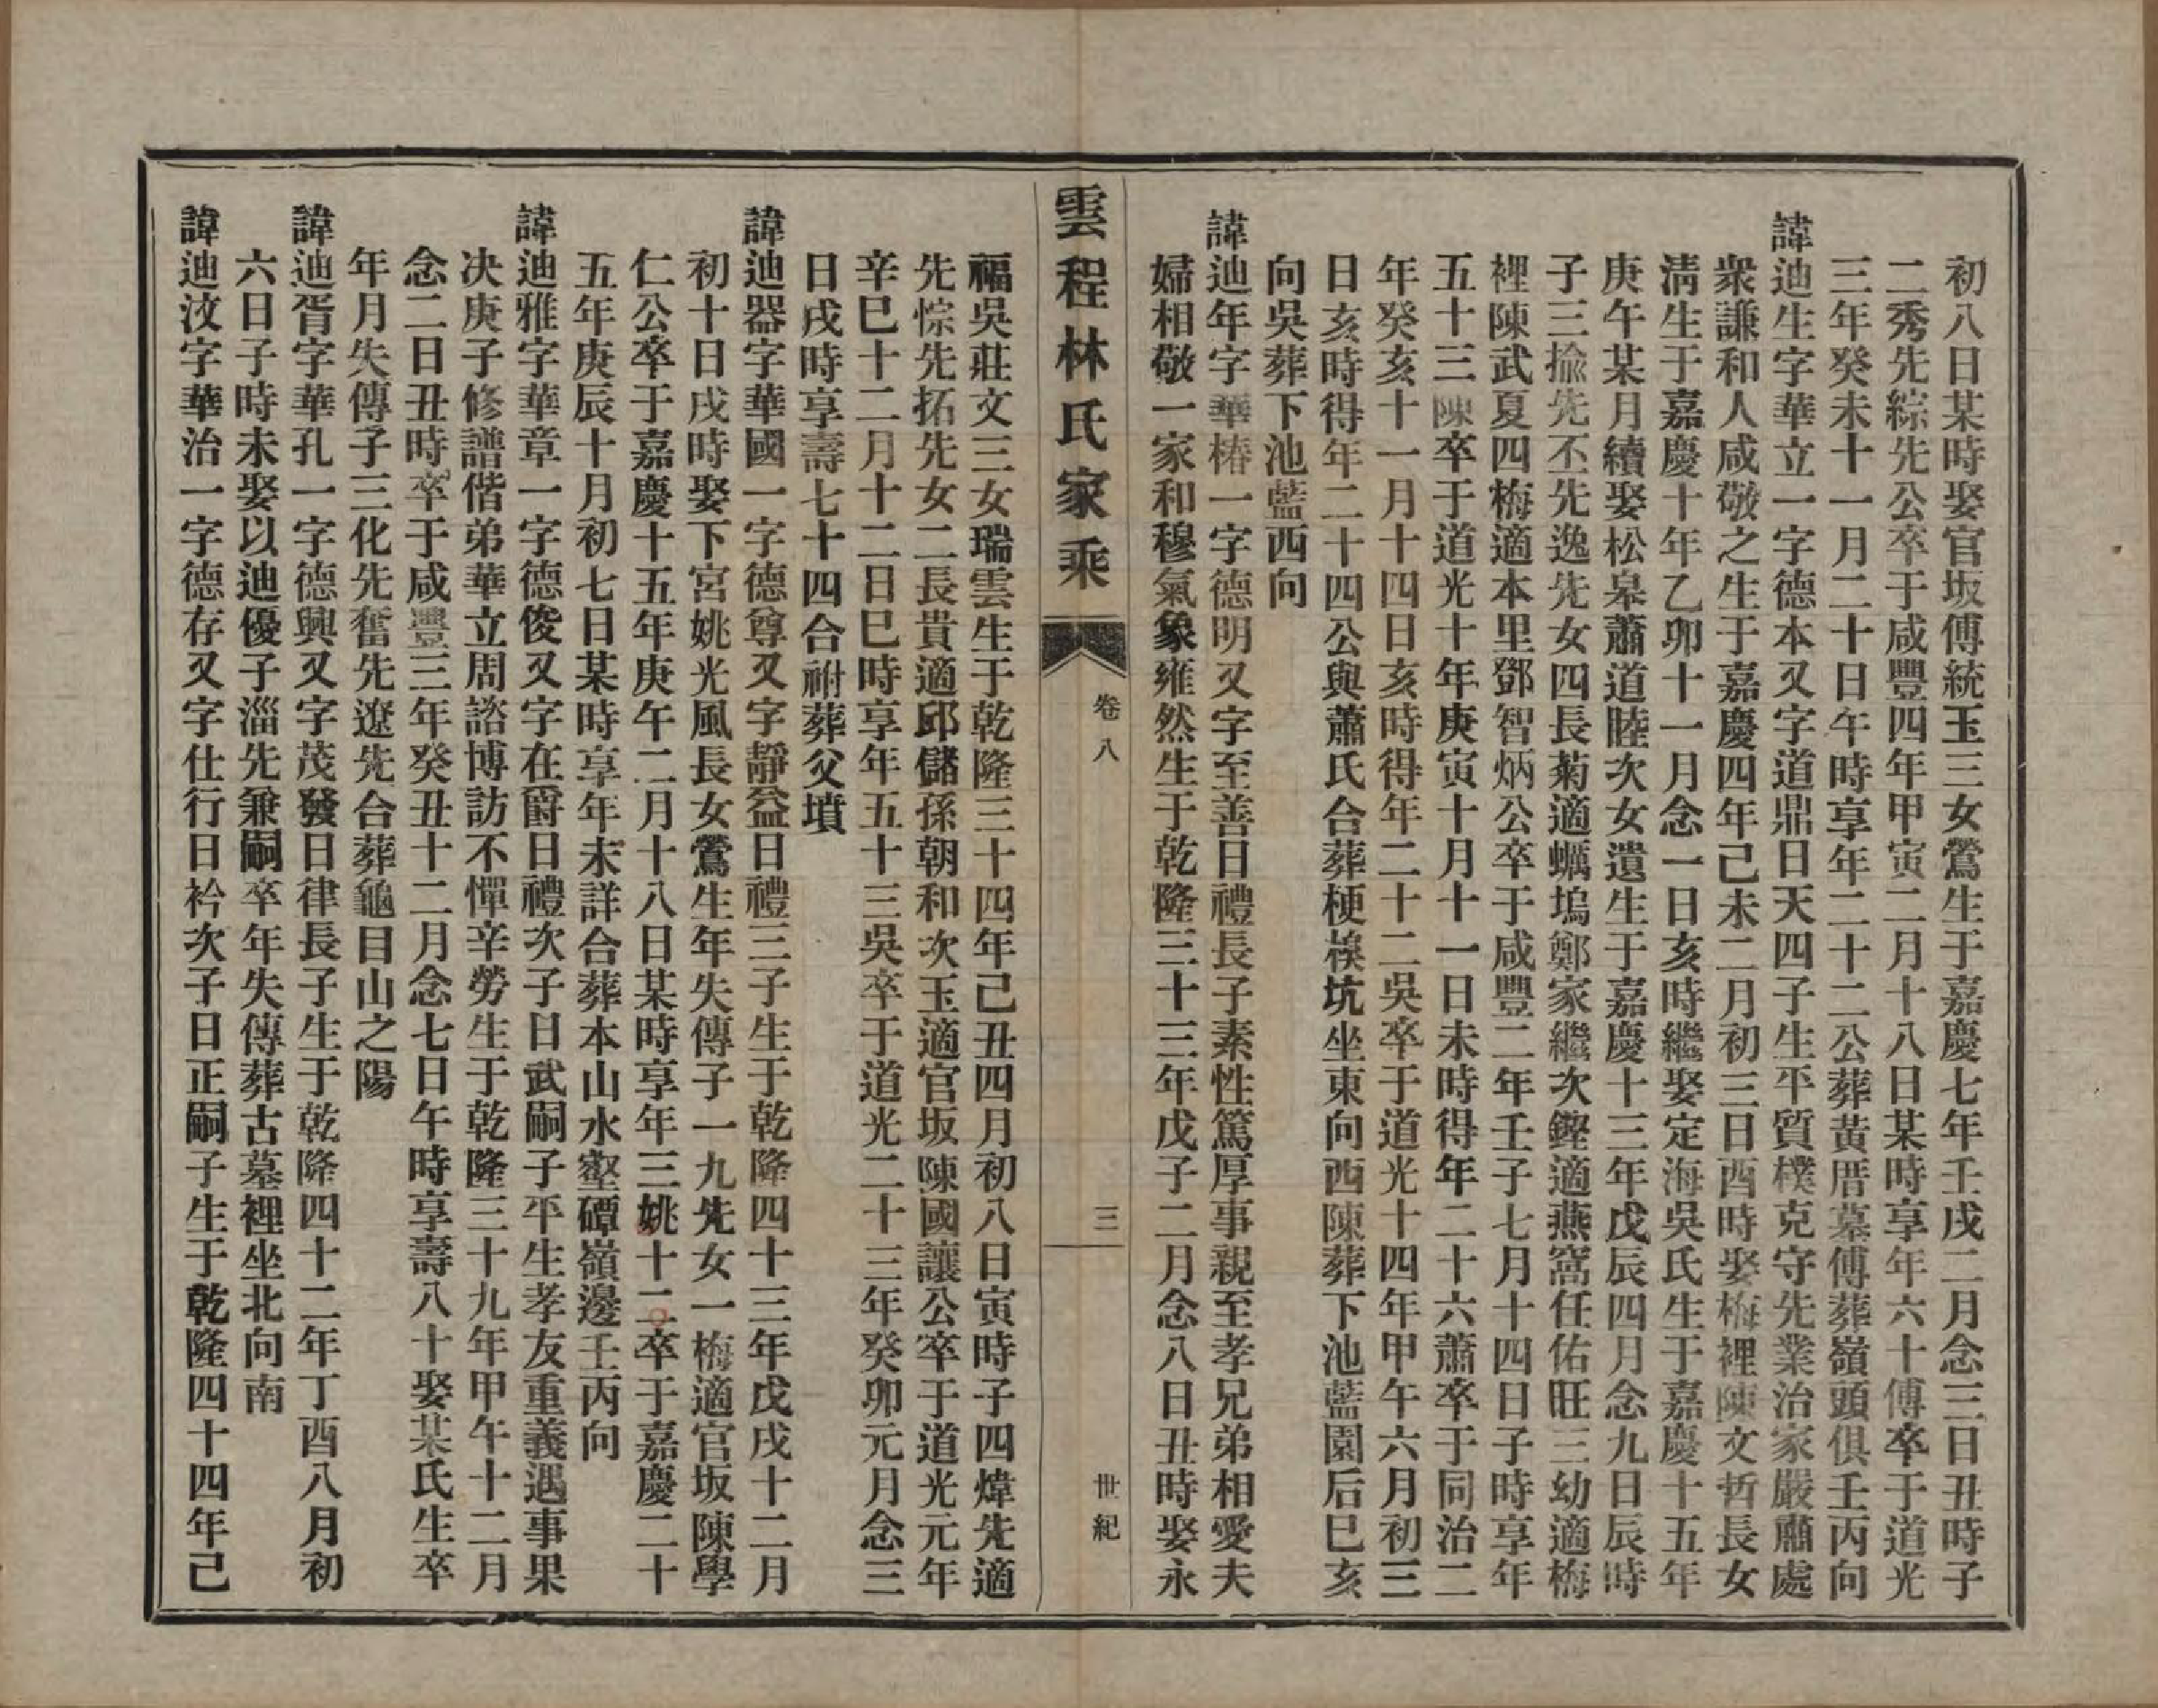 初八日某時娶官坂傅統玉三女鶯生于嘉慶七年壬戌二月念三日丑時子
二秀先綜先公卒于咸豐四年甲寅二月十八日某時享年六十傅卒于道光
三年癸未十一月二十日午時享年二十二公葬黃厝墓傅葬嶺頭俱壬丙向
諱迪生字華立一字德本又字道鼎日天四子生平質樸克守先業治家嚴肅處
衆謙和人咸敬之生于嘉慶四年己未二月初三日酉時娶梅裡陳文哲長女
淸生于嘉慶十年乙卯十一月念一日亥時繼娶定海吳氏生于嘉慶十五年
庚午某月續娶松皋蕭道睦次女遺生于嘉慶十三年戊辰四月念九日辰時
子三揄先丕先逸先女四長菊適蠣塢鄭家繼次鏗適燕窩任佑旺三幼適梅
裡陳武夏四梅適本里鄧智炳公卒于咸豐二年壬子七月十四日子時享年
五十三陳卒于道光十年庚寅十月十一日未時得年二十六蕭卒于同治二
年癸亥十一月十四日亥時得年二十二吳卒于道光十四年甲午六月初三
日亥時得年二十四公與蕭氏合葬梗模坑坐東向西陳葬下池藍園后巳亥
向吳葬下池藍西向
諱迪年字華椿一字德明又字至善日禮長子素性篤厚事親至孝兄弟相愛夫
婦相敬一家和穆氣象雍然生于乾隆三十三年戊子二月念八日丑時娶永
雲程林氏家乘
卷八
三
世紀
福吳莊文三女瑞雲生于乾隆三十四年己丑四月初八日寅時子四煒先適
先悰先拓先女二長貴適邱儲孫朝和次玉適官坂陳國讓公卒于道光元年
辛巳十二月十二日巳時享年五十三吳卒于道光二十三年癸卯元月念三
日戌時享壽七十四合祔葬父墳
諱迪器字華國一字德尊又字靜益日禮三子生于乾隆四十三年戊戌十二月
初十日戌時娶下宮姚光風長女鶯生年失傳子一九先女一梅適官坂陳學
仁公卒于嘉慶十五年庚午二月十八日某時享年三姚十二卒于嘉慶二十
五年庚辰十月初七日某時享年未詳合葬本山水壑磹嶺邊壬丙向
諱迪雅字華章一字德俊又字在爵日禮次子日武嗣子平生孝友重義遇事果
决庚子修譜偕弟華立周諮博訪不憚辛勞生于乾隆三十九年甲午十二月
念二日丑時卒于咸豐三年癸丑十二月念七日午時享壽八十娶某氏生卒
年月失傳子三化先奮先遼先合葬龜目山之陽
諱迪胥字華孔一字德興又字茂發日律長子生于乾隆四十二年丁酉八月初
六日子時未娶以迪優子淄先兼嗣卒年失傳葬古墓裡坐北向南
諱迪汶字華治一字德存又字仕行日衿次子日正嗣子生于乾隆四十四年己